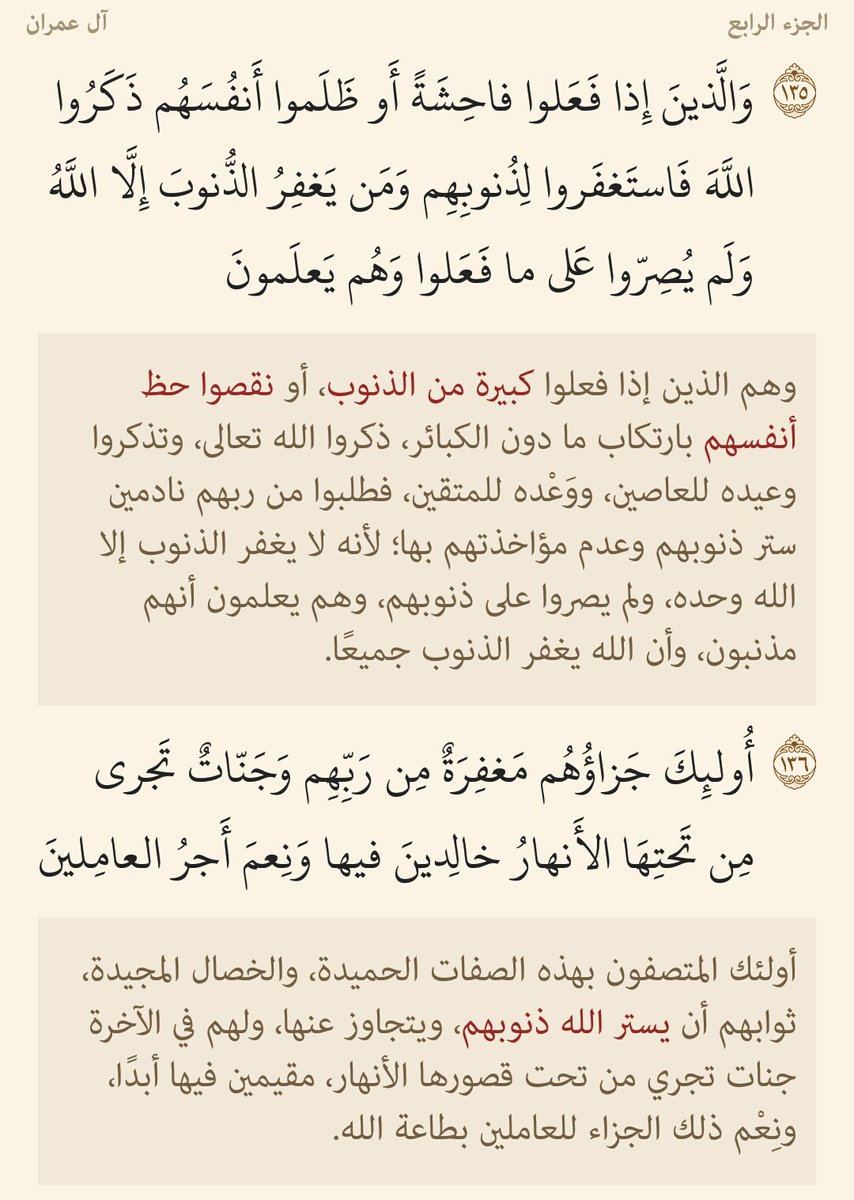 الجزء الرابع
آل عمران
١٣٥ وَالَّذينَ إِذا فَعَلوا فاحِشَةً أَو ظَلَموا أَنفُسَهُم ذَكَرُوا
اللَّهَ فَاستَغفَروا لِذُنوبِهِم وَمَن يَغفِرُ الذُّنوبَ إِلَّا اللَّهُ
وَلَم يُصِرّوا عَلى ما فَعَلوا وَهُم يَعلَمونَ
وهم الذين إذا فعلوا كبيرة من الذنوب، أو نقصوا حظ
أنفسهم بارتكاب ما دون الكبائر، ذكروا الله تعالى، وتذكروا
وعيده للعاصين، ووَعْده للمتقين، فطلبوا من ربهم نادمين
ستر ذنوبهم وعدم مؤاخذتهم بها؛ لأنه لا يغفر الذنوب إلا
الله وحده، ولم يصروا على ذنوبهم، وهم يعلمون أنهم
مذنبون، وأن الله يغفر الذنوب جميعًا.
١٣٦ أُولئِكَ جَزاؤُهُم مَغفِرَةٌ مِن رَبِّهِم وَجَنّاتٌ تَجرى
مِن تَحتِهَا الأَنهارُ خالِدينَ فيها وَنِعمَ أَجرُ العامِلينَ
أولئك المتصفون بهذه الصفات الحميدة، والخصال المجيدة،
ثوابهم أن يستر الله ذنوبهم، ويتجاوز عنها، ولهم في الآخرة
جنات تجري من تحت قصورها الأنهار، مقيمين فيها أبدًا،
ونِعْم ذلك الجزاء للعاملين بطاعة الله.